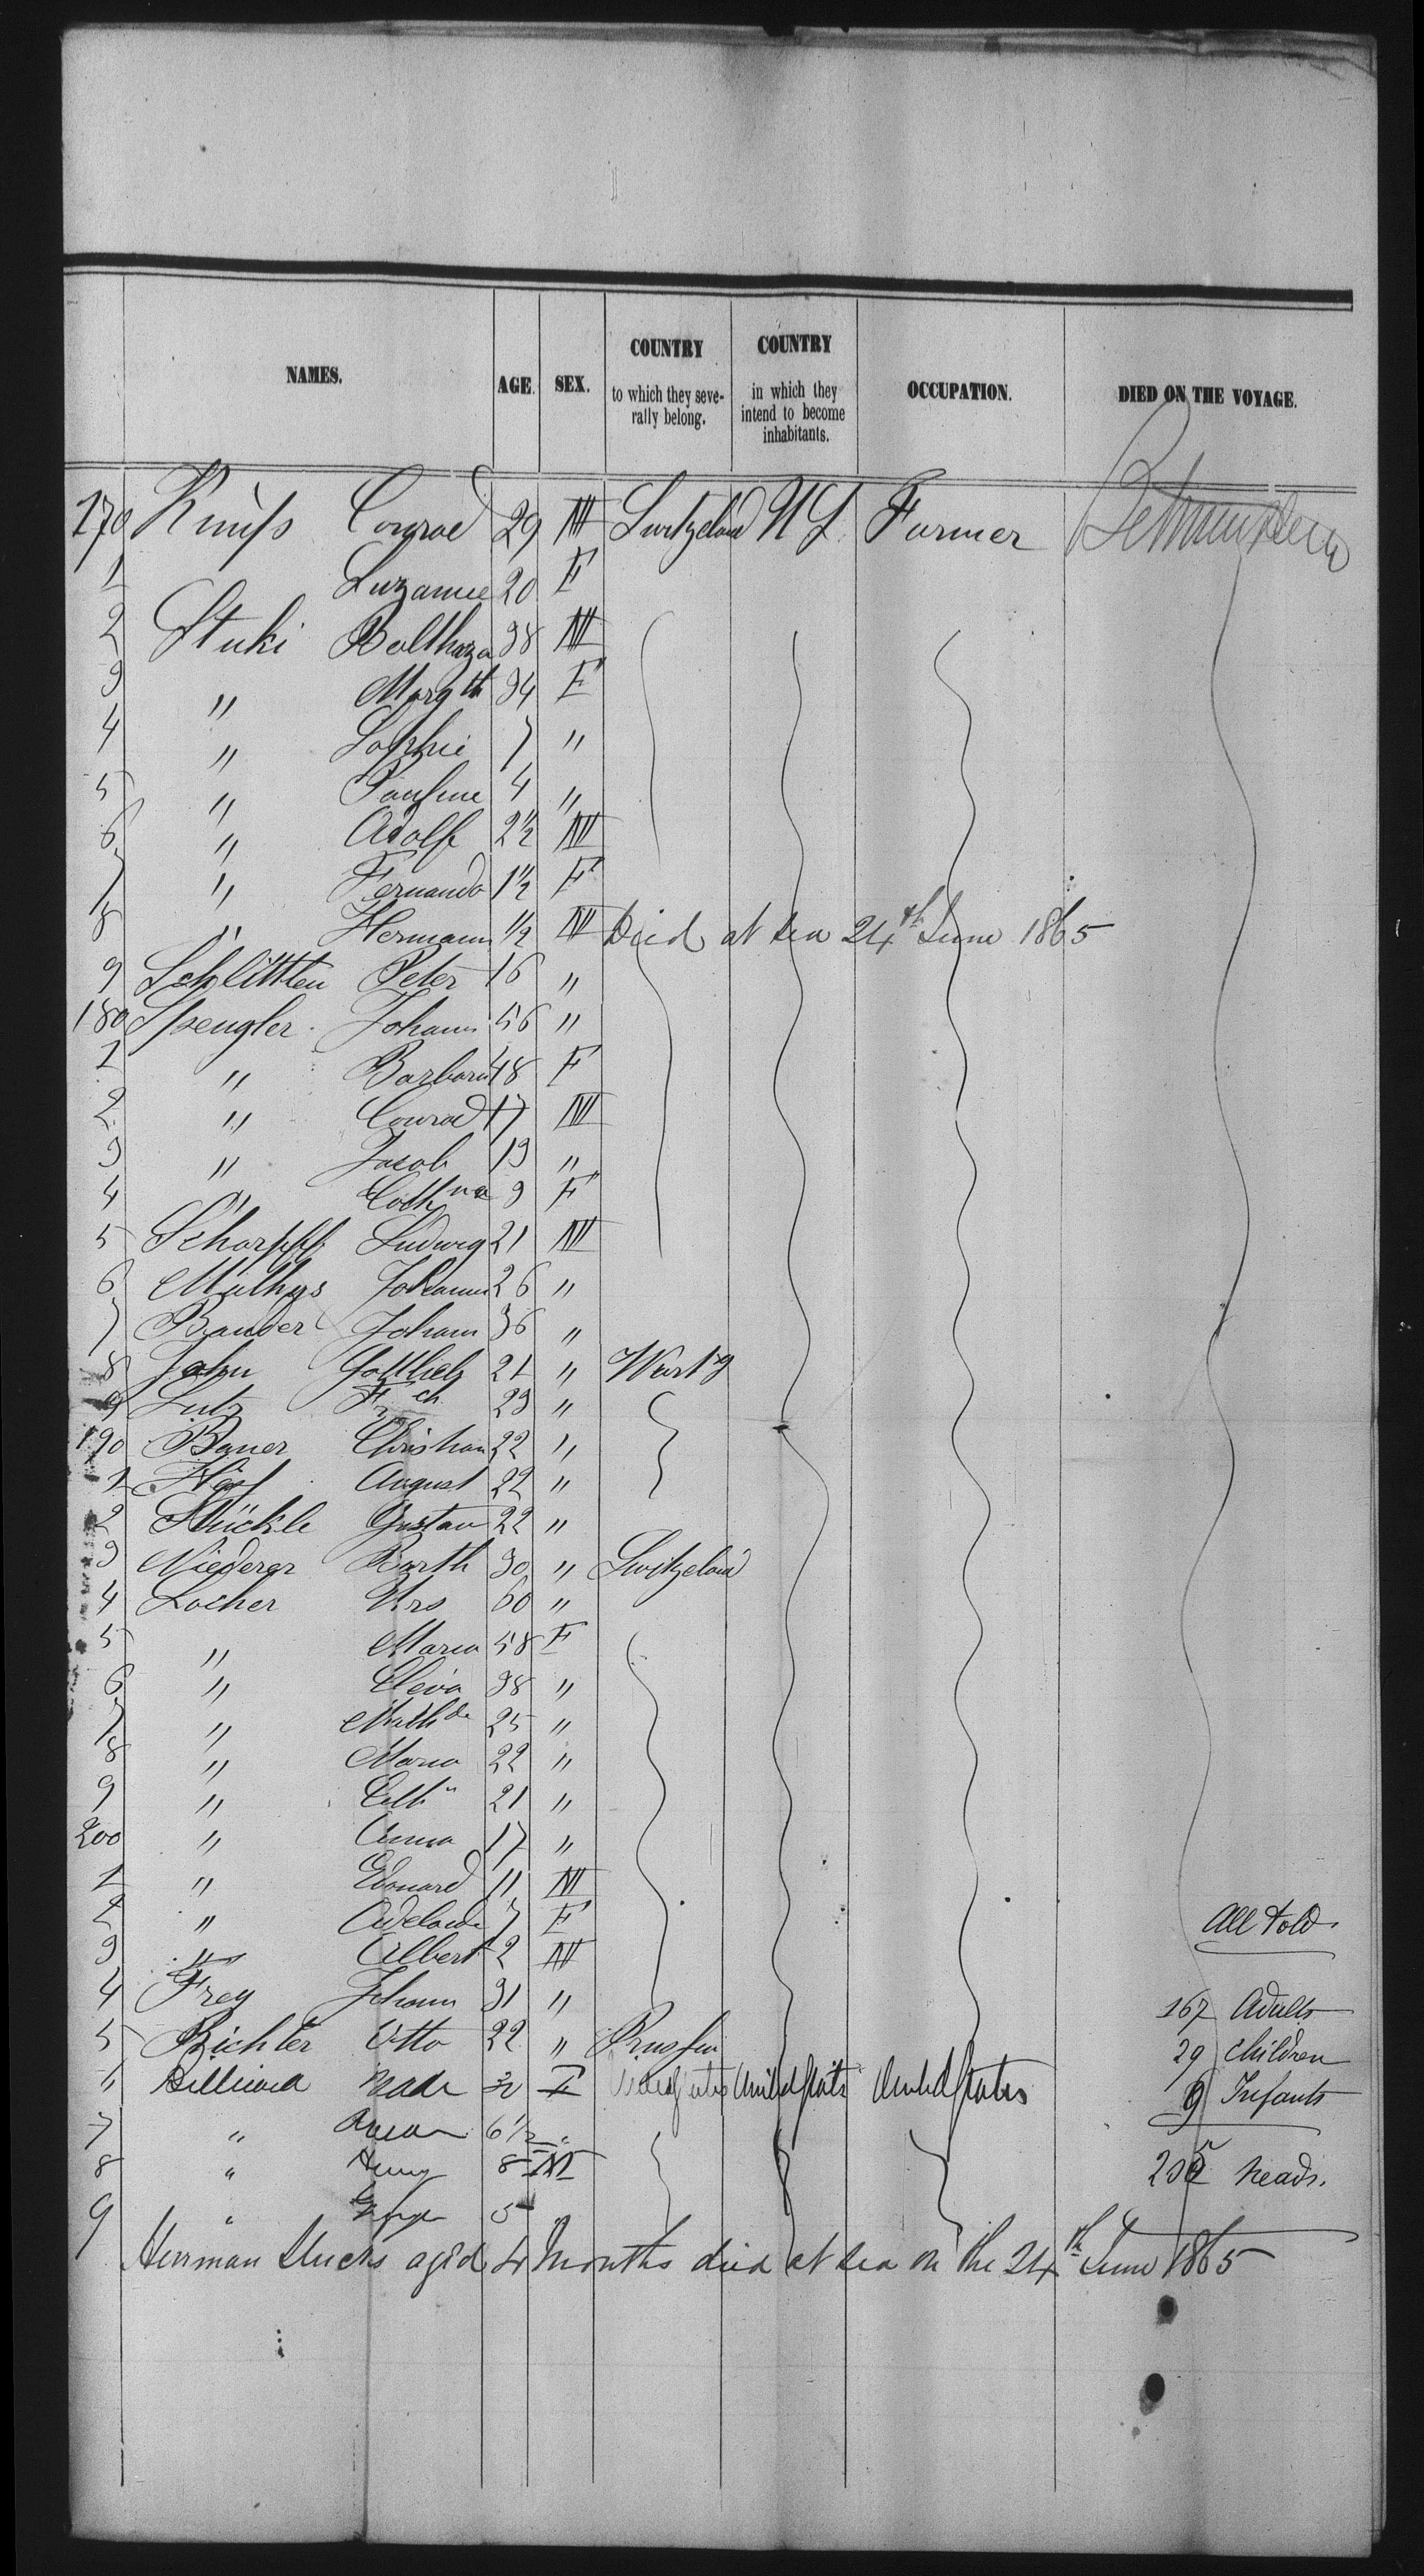 NAMES. AGE. SEX. COUNTRY to which they severally belong. COUNTRY in which they intend to become inhabitants. OCCUPATION. DIED ON THE VOYAGE.
170 Conrad 29 M Switzeland Farmer
1 20 F
2 Stuki Balthaza 38 M
3 " Margth 34 F
4 " Sophie 7 "
5 " Pauline 4 "
6 " Adolf 2½ M
7 " Fernando 1½ F
8 " Hermann ½ M Died at sea 24th June 1865
9 Peter 16 "
180 Spengler Johann 56 "
1 " Barbara 48 F
2 " Conrad 17 M
3 " Jacob 13 "
4 " Cathna 9 F
5 Ludwig 21 M
6 Mathys Johann 26 "
7 Bander Johann 36 "
8 Jahn Gottlieb 21 " Wurtbg
9 Lutz Frch 23 "
190 Bauer Christian 22 "
1 August 22 "
2 Gustav 22 "
3 Niederer Barth 30 " Switzeland
4 Locher Urs 60 "
5 " Maria 58 F
6 " 38 "
7 " Mathde 25 "
8 " Maria 22 "
9 " 21 "
200 " Anna 17 "
1 " Edouard 11 M
2 " Adelaide 7 F All told
3 " Albert 2 M
4 Frey Johann 31 " 167 Adults
5 Richter Otto 22 " Prussia 29 Children
6 F United States United States 9 Infants
7 " 6½ "
8 " Henry 8 M 205 heads.
9 " 5
Herman aged 4 Months died at sea on the 24th June 1865